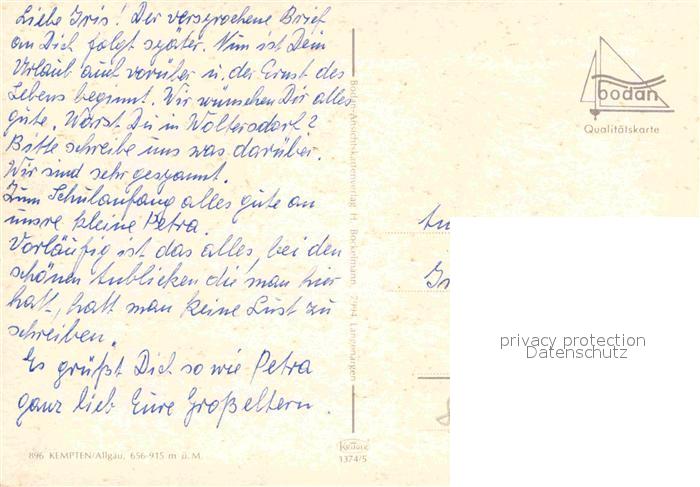 Liebe Iris! Der versprochene Brief
an Dich folgt später. Nun ist Dein
Urlaub auch vorüber u. der Ernst des
Lebens beginnt. Wir wünschen Dir alles
gute. Warst Du in Woltersdorf?
Bitte schreibe uns was darüber.
Wir sind sehr gespannt.
Zum Schulanfang alles gute an
unsre kleine Petra.
Vorläufig ist das alles, bei den
schönen Anblicken die man hier
hatt, hatt man keine Lust zu
schreiben.
Es grüßt Dich sowie Petra
ganz lieb Eure Großeltern.
896 KEMPTEN/Allgäu, 656-915 m ü. M.
Bodan-Ansichtskartenverlag H. Bockelmann 2994 Langenargen
Krüger
1374/5
bodan
Qualitätskarte
An
privacy protection
Datenschutz